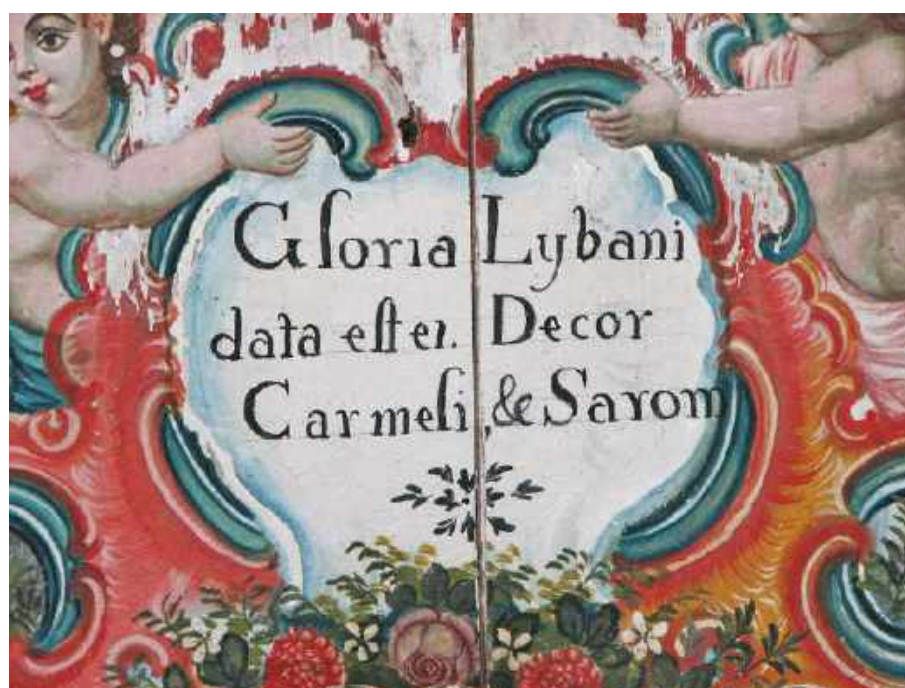 Gloria Lybani
data est ei. Decor
Carmeli, & Sarom